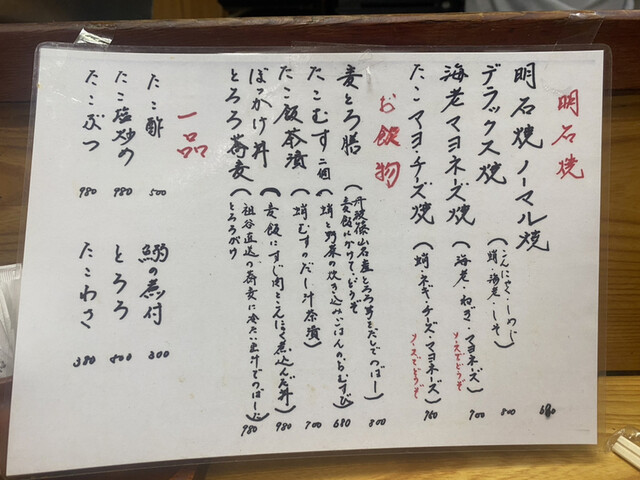 明石焼
明石焼ノーマル焼 680
デラックス焼(こんにゃく・しめじ 蛸・海老・しそ) 800
海老マヨネーズ焼(海老・ねぎ・マヨネーズ) ソースでどうぞ 900
たこマヨ・チーズ焼(蛸・ネギ・チーズ・マヨネーズ) ソースでどうぞ 960
お飲物
麦とろ膳(丹波篠山名産とろろ芋をだしでのばし 麦飯にかけてどうぞ) 800
たこむす二個(蛸と野菜の炊き込みごはんのおむすび) 680
たこ飯茶漬(蛸むすのだし汁茶漬) 700
ぼっかけ丼(麦飯にすじ肉とこんにゃく煮込んだ丼) 980
とろろ蕎麦(祖谷直送の蕎麦に冷たい出汁でのばした とろろがけ) 980
一品
たこ酢 500
たこ塩炒め 980
たこぶつ 980
鰯の煮付 300
とろろ 500
たこわさ 380